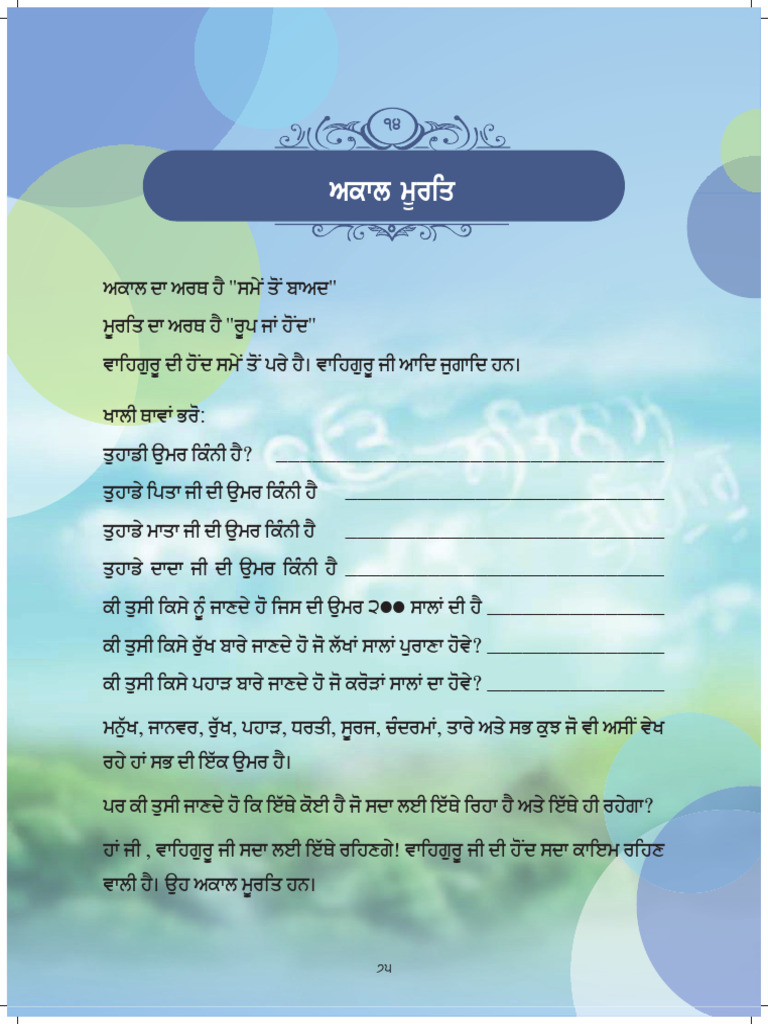 ੧੪
ਅਕਾਲ ਮੂਰਤਿ
ਅਕਾਲ ਦਾ ਅਰਥ ਹੈ "ਸਮੇਂ ਤੋਂ ਬਾਅਦ"
ਮੂਰਤਿ ਦਾ ਅਰਥ ਹੈ "ਰੂਪ ਜਾਂ ਹੋਂਦ"
ਵਾਹਿਗੁਰੂ ਦੀ ਹੋਂਦ ਸਮੇਂ ਤੋਂ ਪਰੇ ਹੈ। ਵਾਹਿਗੁਰੂ ਜੀ ਆਦਿ ਜੁਗਾਦਿ ਹਨ।
ਖਾਲੀ ਥਾਵਾਂ ਭਰੋ:
ਤੁਹਾਡੀ ਉਮਰ ਕਿੰਨੀ ਹੈ? ________________________________
ਤੁਹਾਡੇ ਪਿਤਾ ਜੀ ਦੀ ਉਮਰ ਕਿੰਨੀ ਹੈ ___________________________
ਤੁਹਾਡੇ ਮਾਤਾ ਜੀ ਦੀ ਉਮਰ ਕਿੰਨੀ ਹੈ ___________________________
ਤੁਹਾਡੇ ਦਾਦਾ ਜੀ ਦੀ ਉਮਰ ਕਿੰਨੀ ਹੈ ___________________________
ਕੀ ਤੁਸੀ ਕਿਸੇ ਨੂੰ ਜਾਣਦੇ ਹੋ ਜਿਸ ਦੀ ਉਮਰ ੨੦੦ ਸਾਲਾਂ ਦੀ ਹੈ _______________
ਕੀ ਤੁਸੀ ਕਿਸੇ ਰੁੱਖ ਬਾਰੇ ਜਾਣਦੇ ਹੋ ਜੋ ਲੱਖਾਂ ਸਾਲਾਂ ਪੁਰਾਣਾ ਹੋਵੇ? _______________
ਕੀ ਤੁਸੀ ਕਿਸੇ ਪਹਾੜ ਬਾਰੇ ਜਾਣਦੇ ਹੋ ਜੋ ਕਰੋੜਾਂ ਸਾਲਾਂ ਦਾ ਹੋਵੇ? _______________
ਮਨੁੱਖ, ਜਾਨਵਰ, ਰੁੱਖ, ਪਹਾੜ, ਧਰਤੀ, ਸੂਰਜ, ਚੰਦਰਮਾਂ, ਤਾਰੇ ਅਤੇ ਸਭ ਕੁਝ ਜੋ ਵੀ ਅਸੀਂ ਵੇਖ
ਰਹੇ ਹਾਂ ਸਭ ਦੀ ਇੱਕ ਉਮਰ ਹੈ।
ਪਰ ਕੀ ਤੁਸੀ ਜਾਣਦੇ ਹੋ ਕਿ ਇੱਥੇ ਕੋਈ ਹੈ ਜੋ ਸਦਾ ਲਈ ਇੱਥੇ ਰਿਹਾ ਹੈ ਅਤੇ ਇੱਥੇ ਹੀ ਰਹੇਗਾ?
ਹਾਂ ਜੀ , ਵਾਹਿਗੁਰੂ ਜੀ ਸਦਾ ਲਈ ਇੱਥੇ ਰਹਿਣਗੇ! ਵਾਹਿਗੁਰੂ ਜੀ ਦੀ ਹੋਂਦ ਸਦਾ ਕਾਇਮ ਰਹਿਣ
ਵਾਲੀ ਹੈ। ਉਹ ਅਕਾਲ ਮੂਰਤਿ ਹਨ।
੭੫